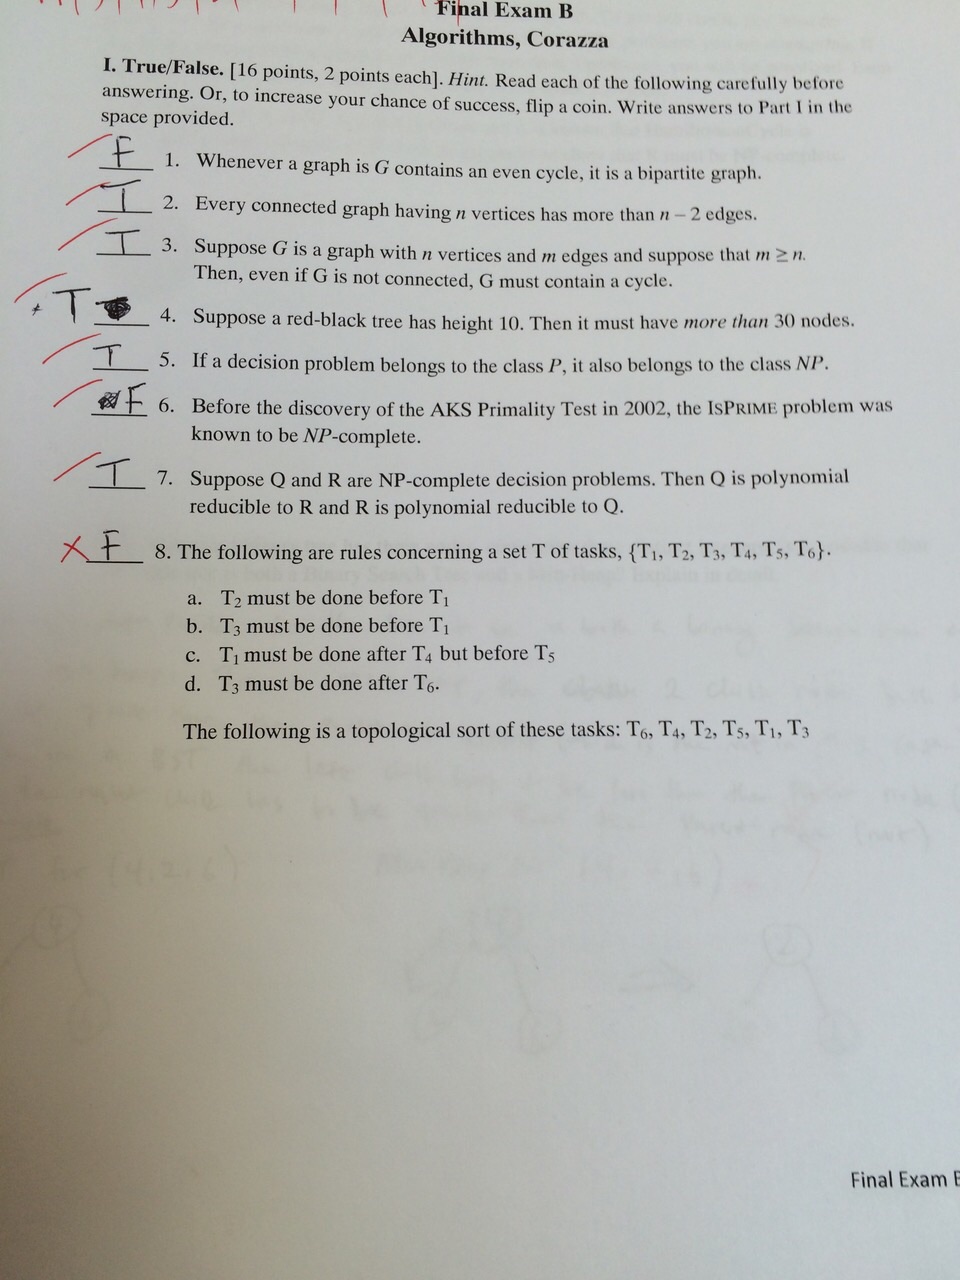 Final Exam B
Algorithms, Corazza
I. True/False. [16 points, 2 points each]. Hint. Read each of the following carefully before
answering. Or, to increase your chance of success, flip a coin. Write answers to Part I in the
space provided.
F 1. Whenever a graph is G contains an even cycle, it is a bipartite graph.
T 2. Every connected graph having n vertices has more than n – 2 edges.
T 3. Suppose G is a graph with n vertices and m edges and suppose that m ≥ n.
Then, even if G is not connected, G must contain a cycle.
T 4. Suppose a red-black tree has height 10. Then it must have more than 30 nodes.
T 5. If a decision problem belongs to the class P, it also belongs to the class NP.
F 6. Before the discovery of the AKS Primality Test in 2002, the ISPRIME problem was
known to be NP-complete.
T 7. Suppose Q and R are NP-complete decision problems. Then Q is polynomial
reducible to R and R is polynomial reducible to Q.
F 8. The following are rules concerning a set T of tasks, {T₁, T₂, T₃, T₄, T₅, T₆}.
a. T₂ must be done before T₁
b. T₃ must be done before T₁
c. T₁ must be done after T₄ but before T₅
d. T₃ must be done after T₆.
The following is a topological sort of these tasks: T₆, T₄, T₂, T₅, T₁, T₃
Final Exam